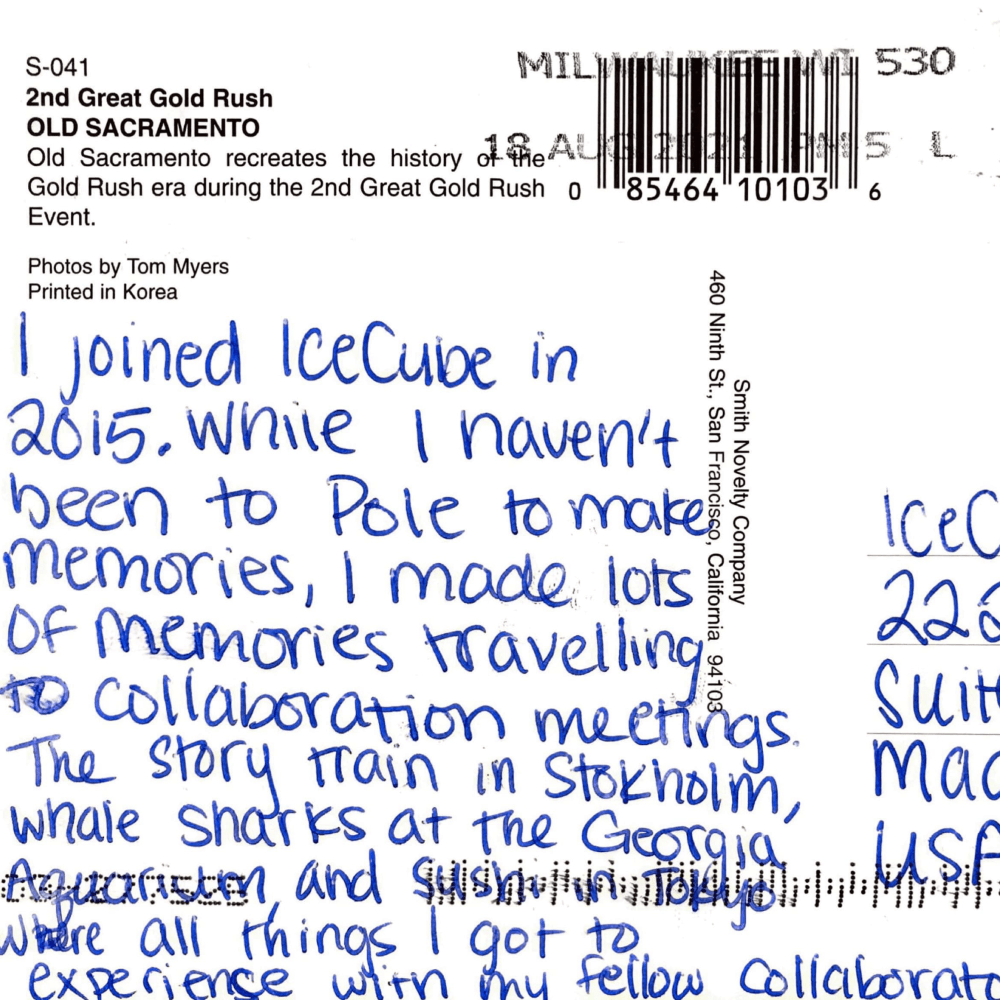 S-041
2nd Great Gold Rush
OLD SACRAMENTO
Old Sacramento recreates the history of the
Gold Rush era during the 2nd Great Gold Rush
Event.
Photos by Tom Myers
Printed in Korea
MILWAUKEE WI 530
18 AUG 2021 PM 5 L
0 85464 10103 6
Smith Novelty Company
460 Ninth St., San Francisco, California 94103
I joined IceCube in
2015. While I haven't
been to Pole to make
memories, I made lots
of memories travelling
to collaboration meetings.
The story train in Stokholm,
whale sharks at the Georgia
Aquarium, and Sushi in Tokyo
where all things I got to
experience with my fellow collaborato
IceC
222
Suit
Mad
USA